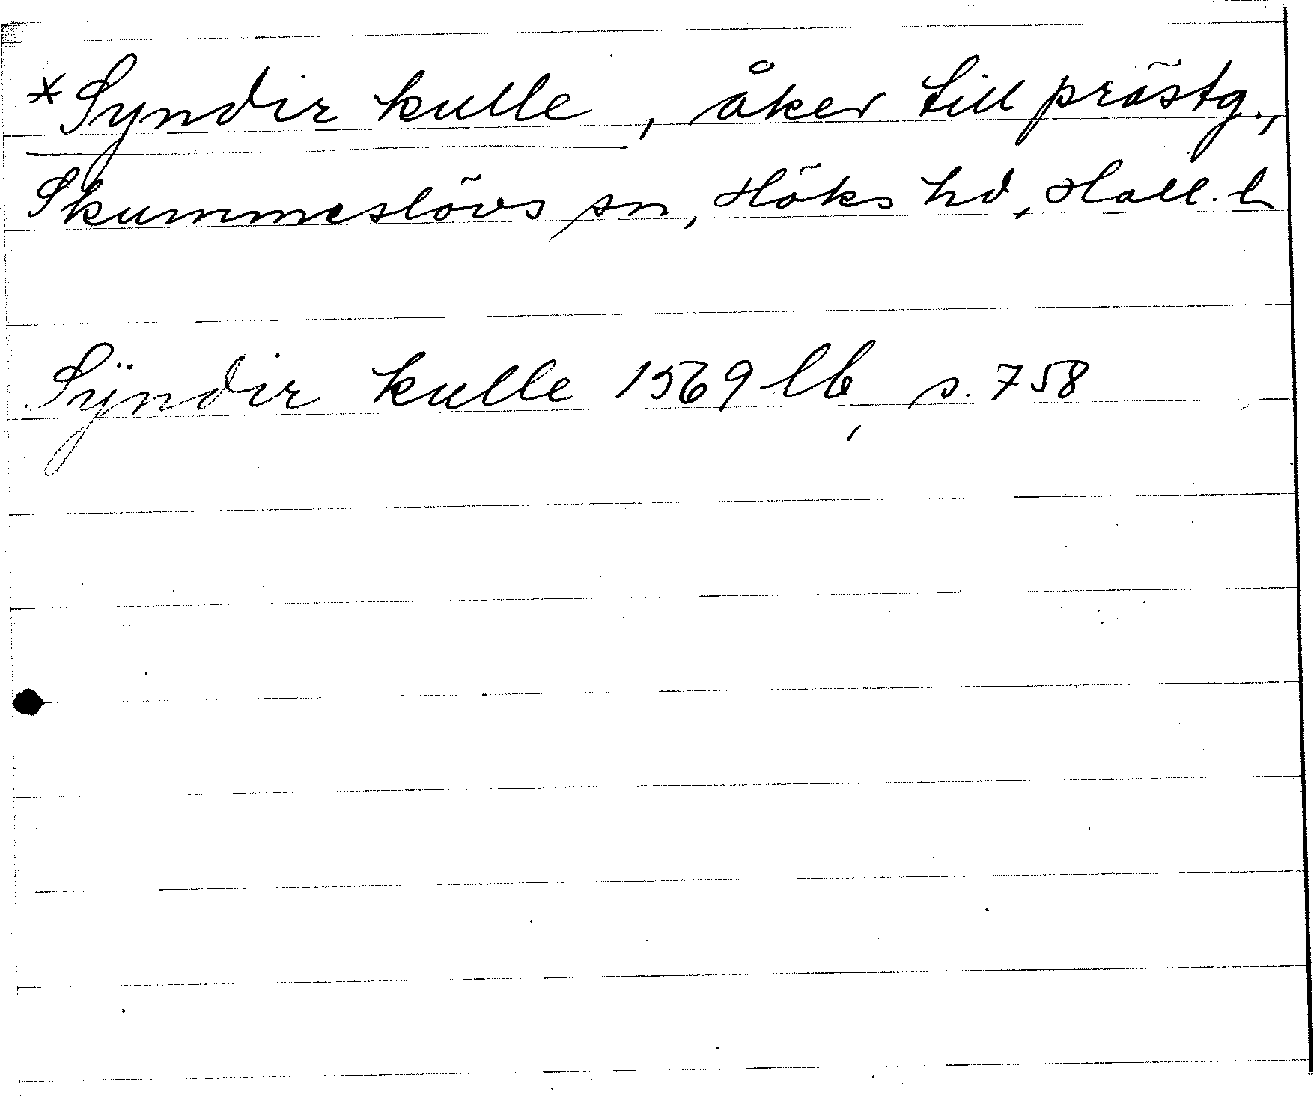 *Syndir kulle, åker till prästg.,
Skummeslövs sn, Höks hd, Hall. l
Sÿndir kulle 1569 lb, s. 758